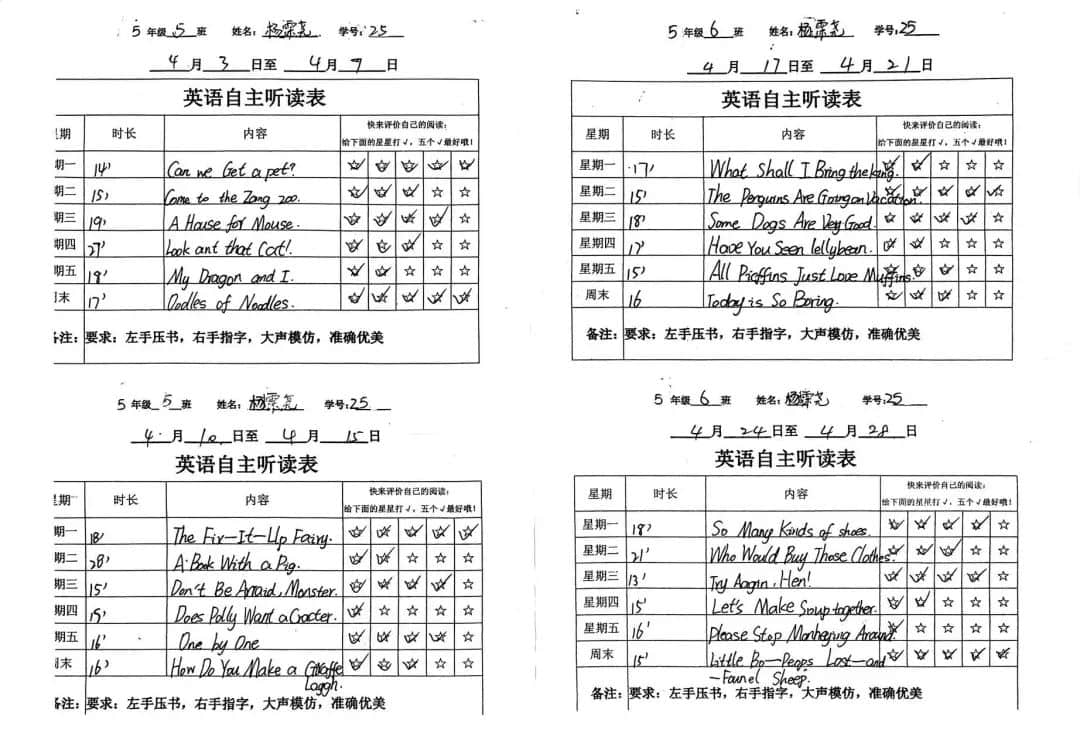 5 年级 5 班 姓名: 杨霂尧 学号: 25
4 月 3 日至 4 月 7 日
英语自主听读表
星期 时长 内容 快来评价自己的阅读: 给下面的星星打√,五个√最好哦!
期一 14' Can we Get a pet?
期二 15' Come to the Zang zoo.
期三 19' A House for Mouse.
期四 27' Look ant that Cat!.
期五 18' My Dragon and I.
周末 17' Oodles of Noodles.
备注: 要求:左手压书,右手指字,大声模仿,准确优美
5 年级 6 班 姓名: 杨霂尧 学号: 25
4 月 17 日至 4 月 21 日
英语自主听读表
星期 时长 内容 快来评价自己的阅读: 给下面的星星打√,五个√最好哦!
星期一 17' What Shall I Bring the king.
星期二 15' The Penguins Are Going on Vacation.
星期三 18' Some Dogs Are Very Good.
星期四 17' Have You Seen lellybean.
星期五 15' All Pieffins Just Love Muffins.
周末 16 Today is So Boring.
备注: 要求:左手压书,右手指字,大声模仿,准确优美
5 年级 5 班 姓名: 杨霂尧 学号: 25
4 月 10 日至 4 月 15 日
英语自主听读表
星期 时长 内容 快来评价自己的阅读: 给下面的星星打√,五个√最好哦!
期一 18' The Fix-It-Up Fairy.
期二 28' A Book With a Pig.
期三 15' Don't Be Arraid, Monster.
期四 15' Does Polly Want a Cracter.
期五 16' One by One
周末 16' How Do You Make a Giraffe
Laggh.
备注: 要求:左手压书,右手指字,大声模仿,准确优美
5 年级 6 班 姓名: 杨霂尧 学号: 25
4 月 24 日至 4 月 28 日
英语自主听读表
星期 时长 内容 快来评价自己的阅读: 给下面的星星打√,五个√最好哦!
星期一 18' So Many Kinds of shoes.
星期二 21' Who Would Buy Those Clothes.
星期三 13' Try Aagin, Hen!
星期四 15' Let's Make Soup together.
星期五 16' Please Stop Monheying Around.
周末 15' Little Bo-Peaps Lost-and
-Founel Sheep.
备注: 要求:左手压书,右手指字,大声模仿,准确优美